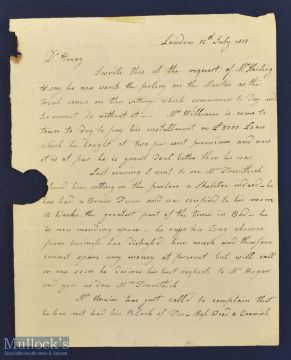 London 12th July 1810
Dr Henry
I write this at the request of Mr Harling
to say he now wants the policy on the Mentor as the
trial comes on this sittings which commence to day and
he cannot do without it - Mr Williams is come to
town to day to pay his installment on £2000 Loan
which he bought at two per cent premium and now
it is at par he is a great deal better than he was
Last evening I went to see Mr Trevithick
found him sitting in the parlour a Skeleton indeed - he
has had a Brain Fever and was confined to his room
12 Weeks. the greatest part of the time in Bed - he
is now mending apace - he says his long absence
from business has distressed him much and therefore
cannot spare any money at present but will call
on me soon he desires his best respects to Mr Rogers
and you as does Mrs Trevithick
Mr Unwin has just called to complain that
he has not had his Block of Tin
Mullock's
Specialist Auctioneers & Valuers